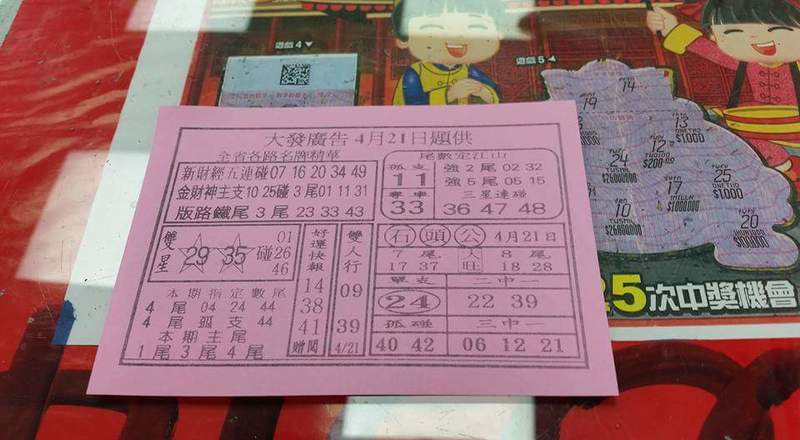 遊戲4▼
遊戲5◀
大發廣告4月21日題供
全省各路名牌精華
新財經五連碰07 16 20 34 49
金財神主支10 25碰 3尾01 11 31
版路鐵尾 3尾 23 33 43
尾數定江山
孤支 強2尾02 32
11 強5尾05 15
專車 三星連碰
33 36 47 48
雙星
29 35 碰
01
26
46
本期指定數尾
4尾 04 24 44
4尾 孤支 44
本期主尾
1尾 3尾 4尾
好運快報
14
38
41
贈閱
雙人行
09
39
4/21
石頭公 4月21日
7尾 大旺 8尾
17 37 18 28
單支 二中一
24 22 39
孤碰 三中一
40 42 06 12 21
14
19
13
12
24
$200
17
$1,000,000
25
$1,000
10
20
5次中獎機會